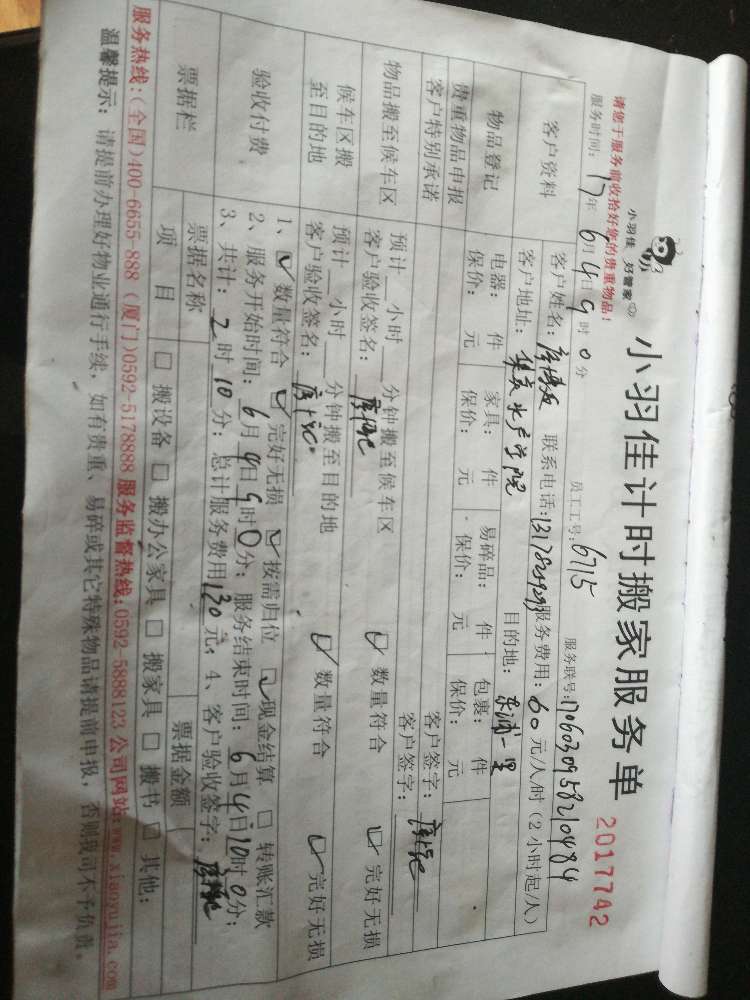 小羽佳计时搬家服务单
2017742
小羽佳 好管家
请您于服务前收拾好您的贵重物品！
服务时间：17年6月4日9时0分 员工工号：6715 服务联号：1706030958210484
客户资料
客户姓名： 联系电话： 服务费用：60元/人/时（2小时起/人）
客户地址：集美水产学院 目的地：东浦一里
物品登记
电器： 件 家具： 件 易碎品： 件 包裹： 件
保价： 元 保价： 元 保价： 元 保价： 元
贵重物品申报 客户签字：
客户特别承诺 客户签字：
物品搬至候车区
预计 小时 分钟搬至候车区 ☑数量符合 ☑完好无损
客户验收签名：
候车区搬至目的地
预计 小时 分钟搬至目的地 ☑数量符合 ☑完好无损
客户验收签名：
验收付费
1、☑数量符合 ☑完好无损 ☑按需归位 ☑现金结算 □转账汇款
2、服务开始时间：6月4日 时0分；服务结束时间：6月4日10时0分；
3、共计：2时10分；总计服务费用130元；4、客户验收签字：
票据栏
票据名称 票据金额
项目 □搬设备 □搬办公家具 □搬家具 □搬书 □其他：
服务热线：(全国)400-6655-888 (厦门)0592-5178888 服务监督热线：0592-5888123 公司网站：www.xiaoyujia.com
温馨提示：请提前办理好物业通行手续，如有贵重、易碎或其它特殊物品请提前申报，否则我司不予负责。